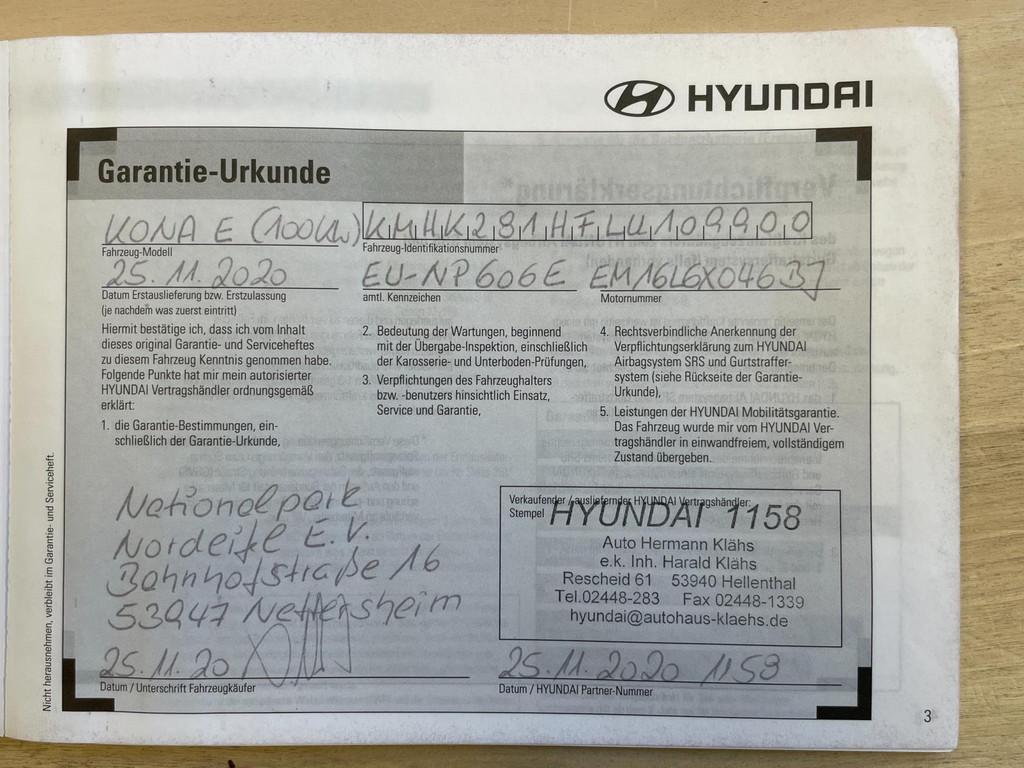 HYUNDAI
Garantie-Urkunde
KONA E (100KW) KMHK281HFLU109900
Fahrzeug-Modell Fahrzeug-Identifikationsnummer
25.11.2020 EU-NP606E EM16L6X046BJ
Datum Erstauslieferung bzw. Erstzulassung
(je nachdem was zuerst eintritt)
amtl. Kennzeichen
Motornummer
Hiermit bestätige ich, dass ich vom Inhalt
dieses original Garantie- und Serviceheftes
zu diesem Fahrzeug Kenntnis genommen habe.
Folgende Punkte hat mir mein autorisierter
HYUNDAI Vertragshändler ordnungsgemäß
erklärt:
1. die Garantie-Bestimmungen, ein-
schließlich der Garantie-Urkunde,
2. Bedeutung der Wartungen, beginnend
mit der Übergabe-Inspektion, einschließlich
der Karosserie- und Unterboden-Prüfungen,
3. Verpflichtungen des Fahrzeughalters
bzw. -benutzers hinsichtlich Einsatz,
Service und Garantie,
4. Rechtsverbindliche Anerkennung der
Verpflichtungserklärung zum HYUNDAI
Airbagsystem SRS und Gurtstraffer-
system (siehe Rückseite der Garantie-
Urkunde),
5. Leistungen der HYUNDAI Mobilitätsgarantie.
Das Fahrzeug wurde mir vom HYUNDAI Ver-
tragshändler in einwandfreiem, vollständigem
Zustand übergeben.
Nationalpark
Nordeifel E.V.
Bahnhofstraße 16
53947 Nettersheim
25.11.20
Datum / Unterschrift Fahrzeugkäufer
Verkaufender / ausliefernder HYUNDAI Vertragshändler:
Stempel
HYUNDAI 1158
Auto Hermann Klähs
e.k. Inh. Harald Klähs
Rescheid 61 53940 Hellenthal
Tel.02448-283 Fax 02448-1339
hyundai@autohaus-klaehs.de
25.11.2020 1158
Datum / HYUNDAI Partner-Nummer
Nicht herausnehmen, verbleibt im Garantie- und Serviceheft.
3